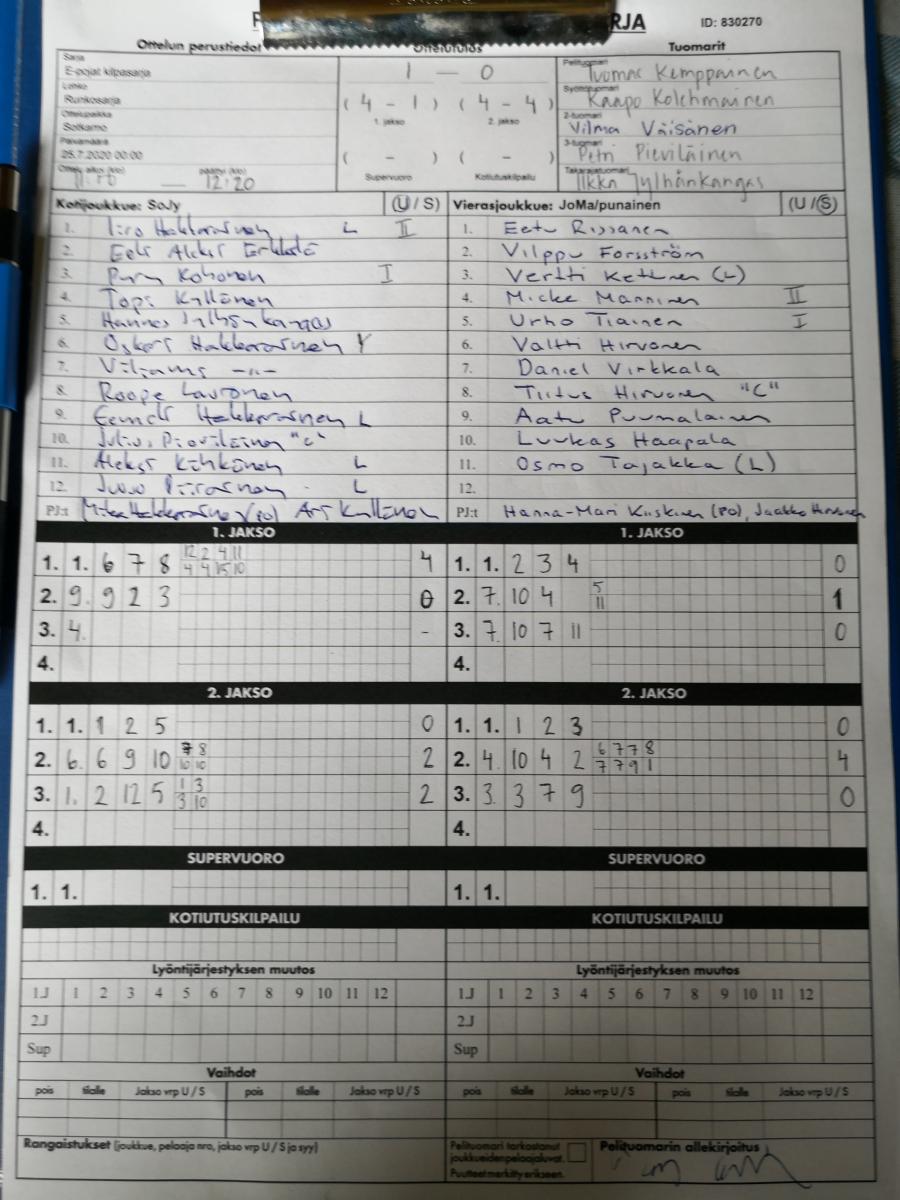 RJA ID: 830270
Ottelun perustiedot Ottelutulos Tuomarit
Sarja
E-pojat kilpasarja
1 — 0
Pelituomari
Tuomas Kemppainen
Lohko
Runkosarja
(4 - 1) (4 - 4)
1. jakso 2. jakso
Syöttötuomari
Kaapo Kolehmainen
Ottelupaikka
Sotkamo
2-tuomari
Vilma Väisänen
Päivämäärä
25.7.2020 00:00
( - ) ( - )
Supervuoro Kotiutuskilpailu
3-tuomari
Petri Pieviläinen
Ottelu alkoi (klo) päättyi (klo)
— 12:20
Takarajatuomari
Ilkka Jylhänkangas
Kotijoukkue: SoJy (U / S) Vierasjoukkue: JoMa/punainen (U / S)
1. Iiro Hakkarainen L II
2. Eeli Aleksi
3. Kohonen I
4. Topi Kyllönen
5. Hannes Jylhänkangas
6. Oskari Hakkarainen
7. Viljami -"-
8. Roope
9. Eemeli Hakkarainen L
10. Julius Pieviläinen "C"
11. Aleksi L
12. Juuso Piirainen L
PJ:t Mika Hakkarainen (PO) Ari Kyllönen
1. Eetu Rissanen
2. Vilppu Forsström
3. Vertti Kettunen (L)
4. Micke Manninen II
5. Urho Tiainen I
6. Valtti Hirvonen
7. Daniel Virkkala
8. Tiitus Hirvonen "C"
9. Aatu Puumalainen
10. Luukas Haapala
11. Osmo Tajakka (L)
12.
PJ:t Hanna-Mari Kiiskinen (PO), Jaakko Hirvonen
1. JAKSO 1. JAKSO
1. 1. 6 7 8 12 2 4 11 4
4 4 15 10
2. 9. 9 2 3 0
3. 4. -
4.
1. 1. 2 3 4 0
2. 7. 10 4 5 1
11
3. 7. 10 7 11 0
4.
2. JAKSO 2. JAKSO
1. 1. 1 2 5 0
2. 6. 6 9 10 7 8 2
10 10
3. 1. 2 12 5 1 3 2
3 10
4.
1. 1. 1 2 3 0
2. 4. 10 4 2 6 7 7 8 4
7 7 9 1
3. 3. 3 7 9 0
4.
SUPERVUORO SUPERVUORO
1. 1. 1. 1.
KOTIUTUSKILPAILU KOTIUTUSKILPAILU
Lyöntijärjestyksen muutos Lyöntijärjestyksen muutos
1J 1 2 3 4 5 6 7 8 9 10 11 12 1J 1 2 3 4 5 6 7 8 9 10 11 12
2J 2J
Sup Sup
Vaihdot Vaihdot
pois tilalle Jakso vrp U / S pois tilalle Jakso vrp U / S pois tilalle Jakso vrp U / S pois tilalle Jakso vrp U / S
Rangaistukset (joukkue, pelaaja nro, jakso vrp U / S ja syy)
Pelituomari tarkastanut
joukkueiden pelaajaluvat.
Puutteet merkitty erikseen.
Pelituomarin allekirjoitus